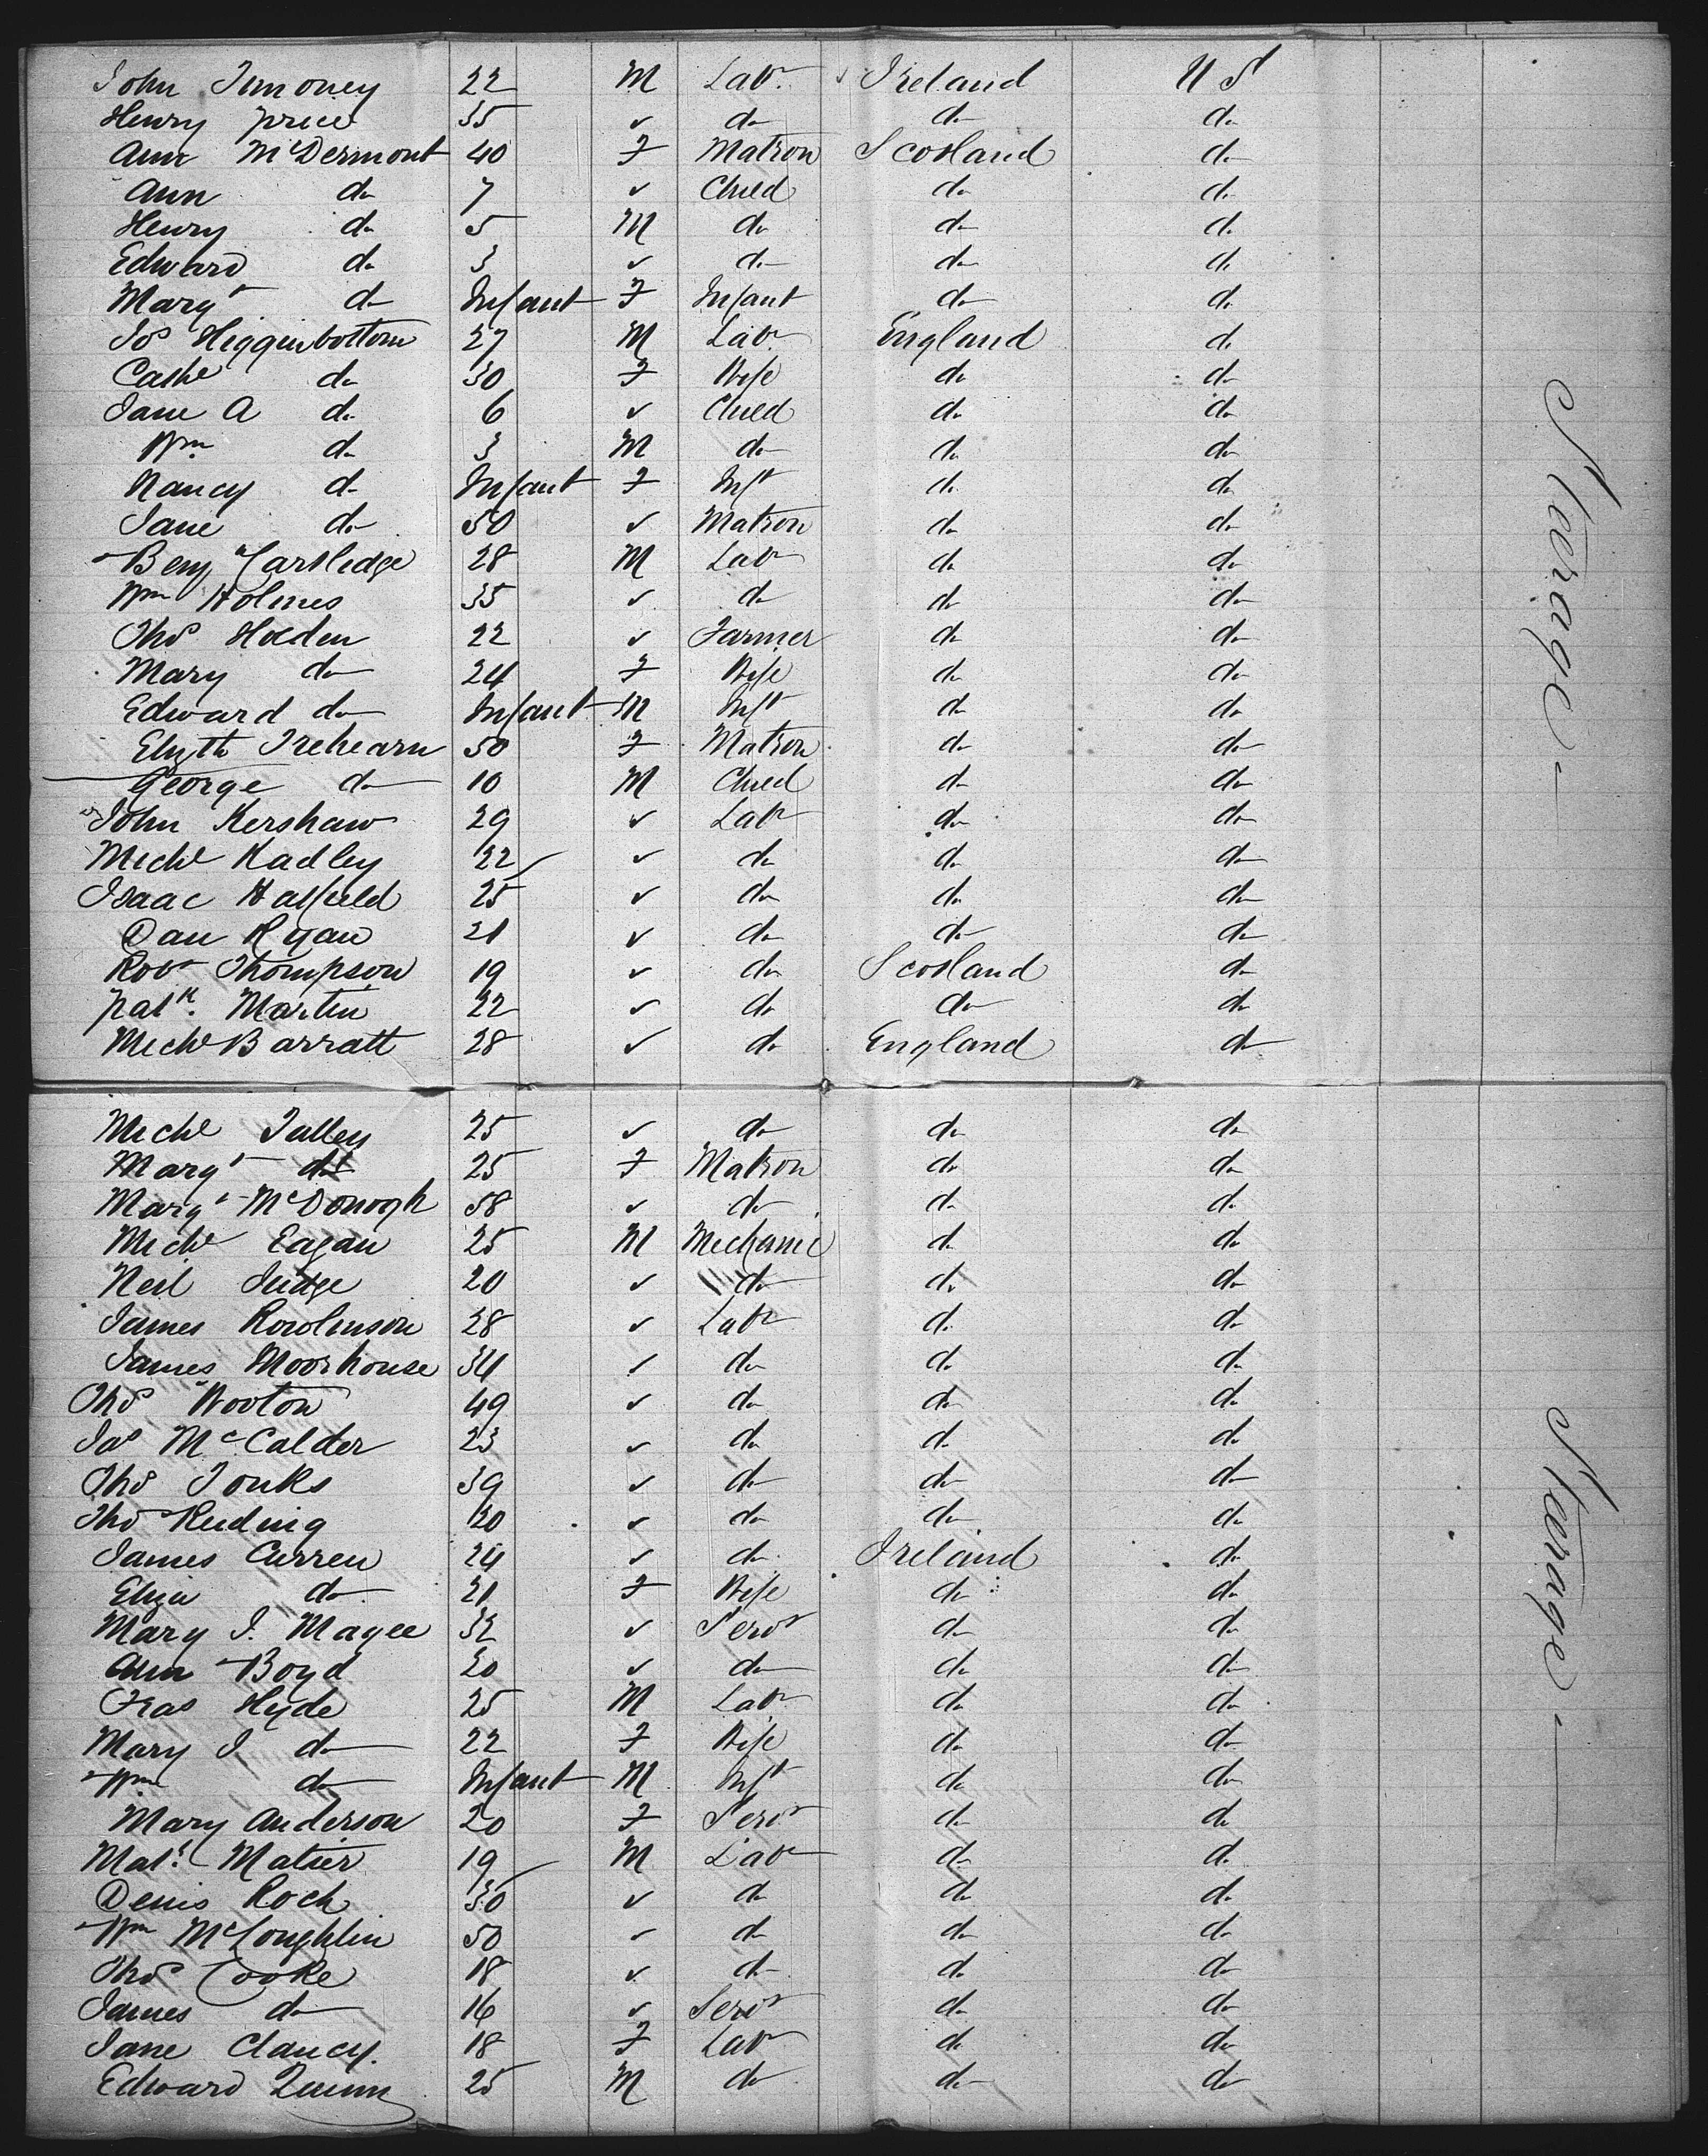 John Timoney 22 M Labr Ireland U S
Henry Price 35 ✓ do do do
Ann McDermont 40 F Matron Scotland do
Ann do 7 ✓ Child do do
Henry do 5 M do do do
Edward do 3 ✓ do do do
Margt do Infant F Infant do do
Jos Higginbottom 27 M Labr England do
Cathe do 30 F Wife do do
Jane A do 6 ✓ Child do do
Wm do 3 M do do do
Nancy do Infant F Inft do do
Jane do 50 ✓ Matron do do
Benj Cartledge 28 M Labr do do
Wm Holmes 35 ✓ do do do
Thos Holden 22 ✓ Farmer do do
Mary do 24 F Wife do do
Edward do Infant M Inft do do
Elizth Trehearn 50 F Matron do do
George do 10 M Child do do
John Kershaw 29 ✓ Labr do do
Michl Hadley 22 ✓ do do do
Isaac Hatfield 25 ✓ do do do
Dan Ryan 21 ✓ do do do
Robt Thompson 19 ✓ do Scotland do
Patk Martin 22 ✓ do do do
Michl Barratt 28 ✓ do England do
Steerage
Michl Talley 25 ✓ do do do
Margt do 25 F Matron do do
Margt McDonogh 58 ✓ do do do
Michl Eagan 25 M Mechanic do do
Neil Judge 20 ✓ do do do
James Rowlinson 28 ✓ Labr do do
James Moorhouse 34 ✓ do do do
Thos Wooton 49 ✓ do do do
Jas McCalder 23 ✓ do do do
Thos Tonks 39 ✓ do do do
Thos Ruding 20 ✓ do do do
James Curren 24 ✓ do Ireland do
Eliza do 21 F Wife do do
Mary J. Magee 32 ✓ Servt do do
Ann Boyd 20 ✓ do do do
Fras Hyde 25 M Labr do do
Mary J do 22 F Wife do do
Wm do Infant M Inft do do
Mary Anderson 20 F Servt do do
Mat. Matier 19 M Labr do do
Denis Roch 30 ✓ do do do
Wm McLoughlin 50 ✓ do do do
Thos Cooke 18 ✓ do do do
James do 16 ✓ Servt do do
Jane Clancy 18 F Labr do do
Edward Quinn 25 M do do do
Steerage